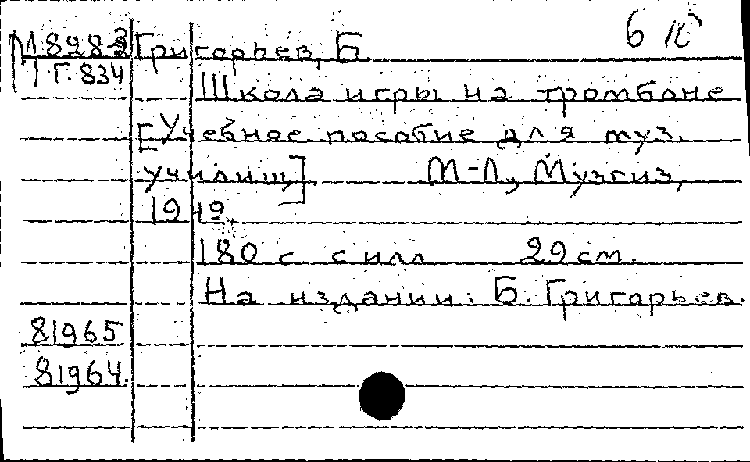 М 828-3 Григорьев, Б 6 к
Г. 834
Школа игры на тромбоне
[Учебное пособие для муз.
училищ]. М-Л., Музгиз,
1949.
180 с с илл 29 см.
На издании: Б. Григорьев.
81965
81964.